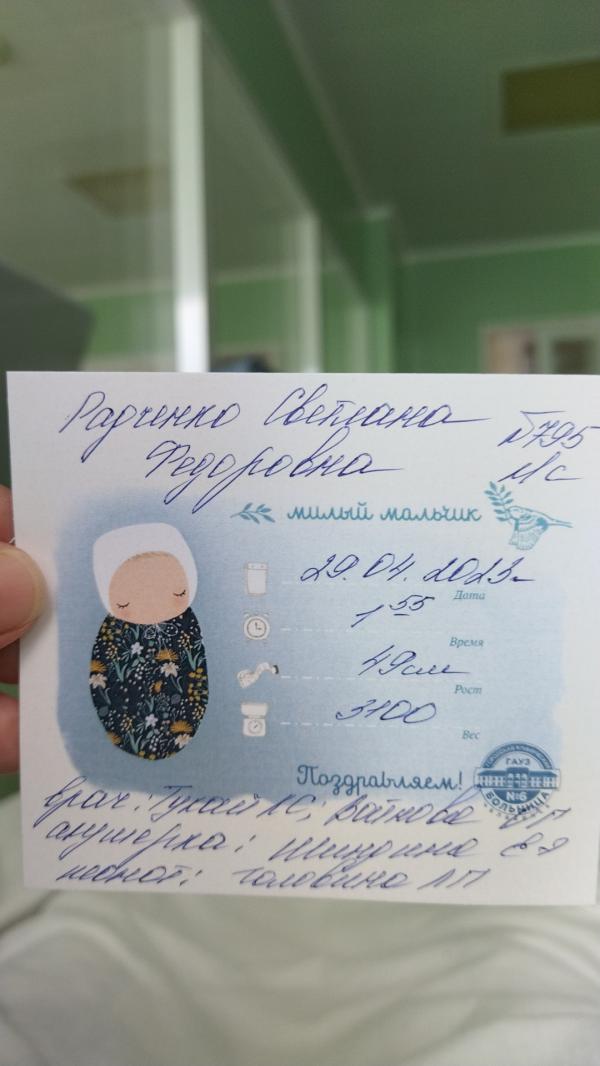 Радченко Светлана
Федоровна
№795
м/с
милый мальчик
29.04.2023г
Дата
1 55
Время
49см
Рост
3100
Вес
Поздравляем!
ГАУЗ
№6
БОЛЬНИЦА
врач:
акушерка:
неонат: Головина ЛП